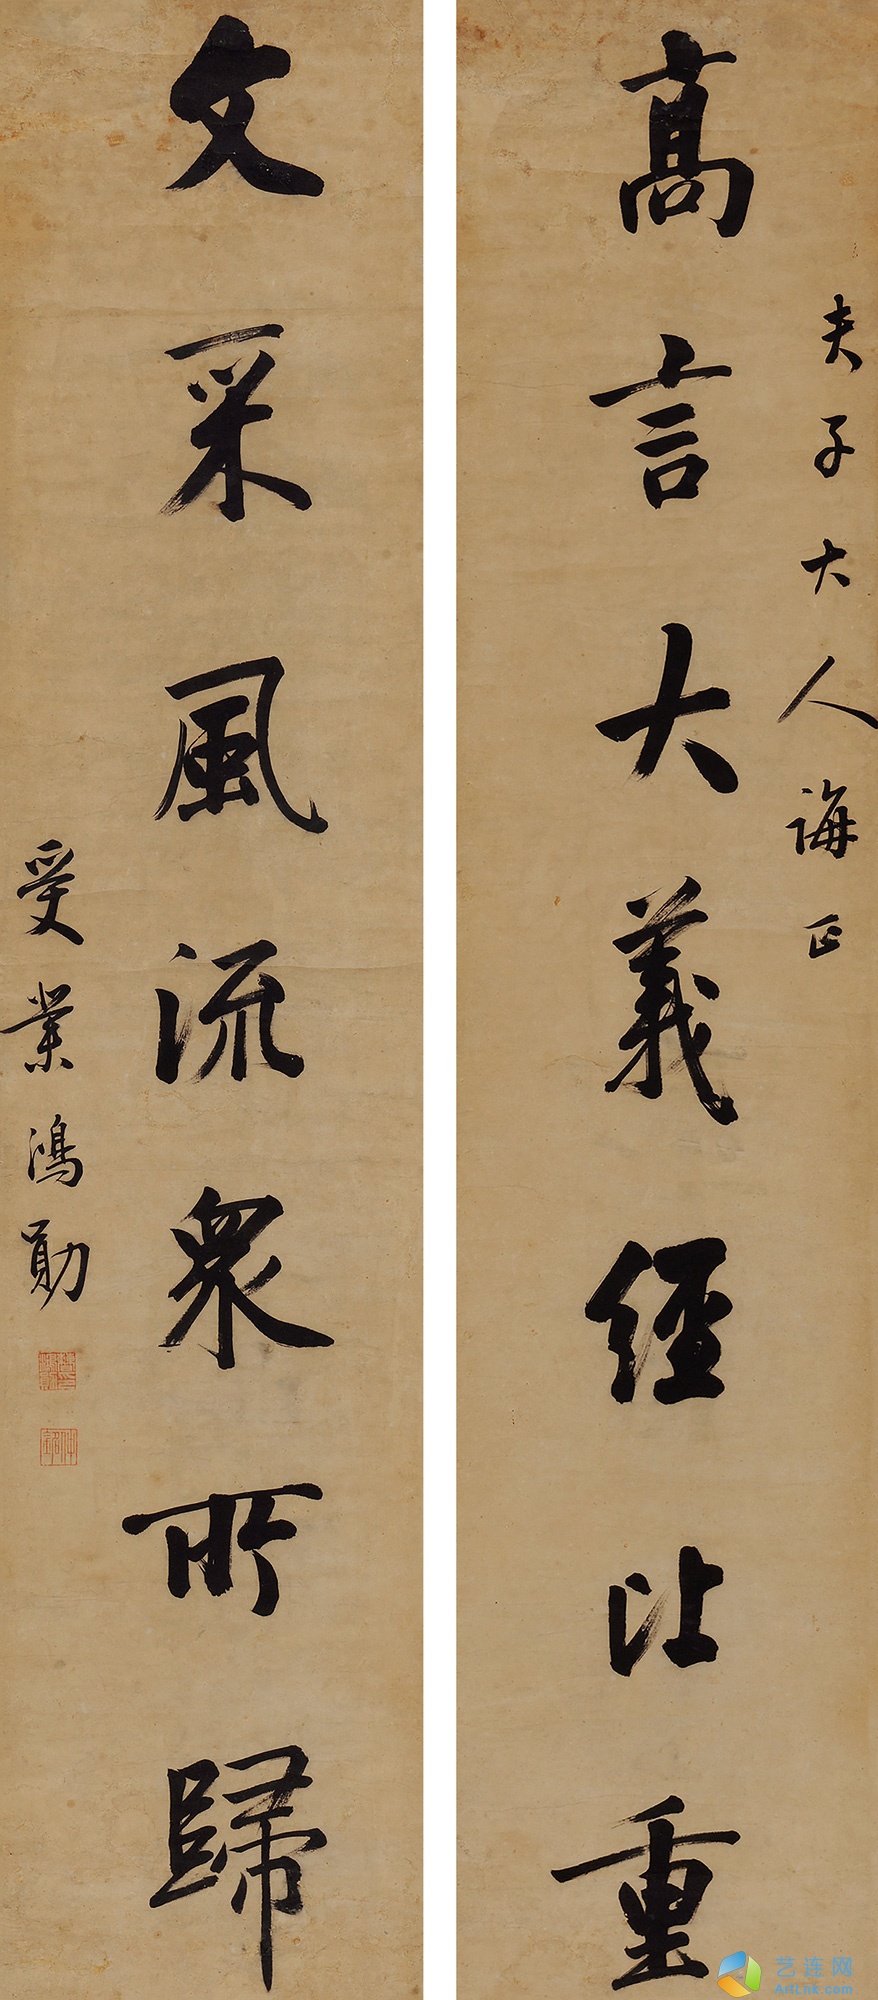 夫子大人誨正
高言大義經比重
文采風流眾所歸
受業鴻勛
艺连网
ArtLink.com